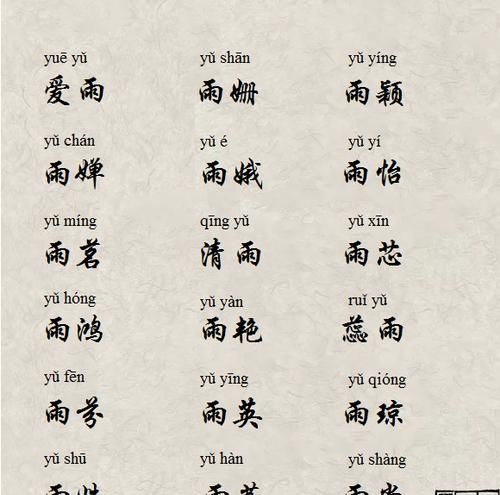 yuē yǔ yǔ shān yǔ yíng
爱雨 雨姗 雨颖
yǔ chán yǔ é yǔ yí
雨婵 雨娥 雨怡
yǔ míng qīng yǔ yǔ xīn
雨茗 清雨 雨芯
yǔ hóng yǔ yàn ruǐ yǔ
雨鸿 雨艳 蕊雨
yǔ fēn yǔ yīng yǔ qióng
雨芬 雨英 雨琼
yǔ shū yǔ hàn yǔ shàng